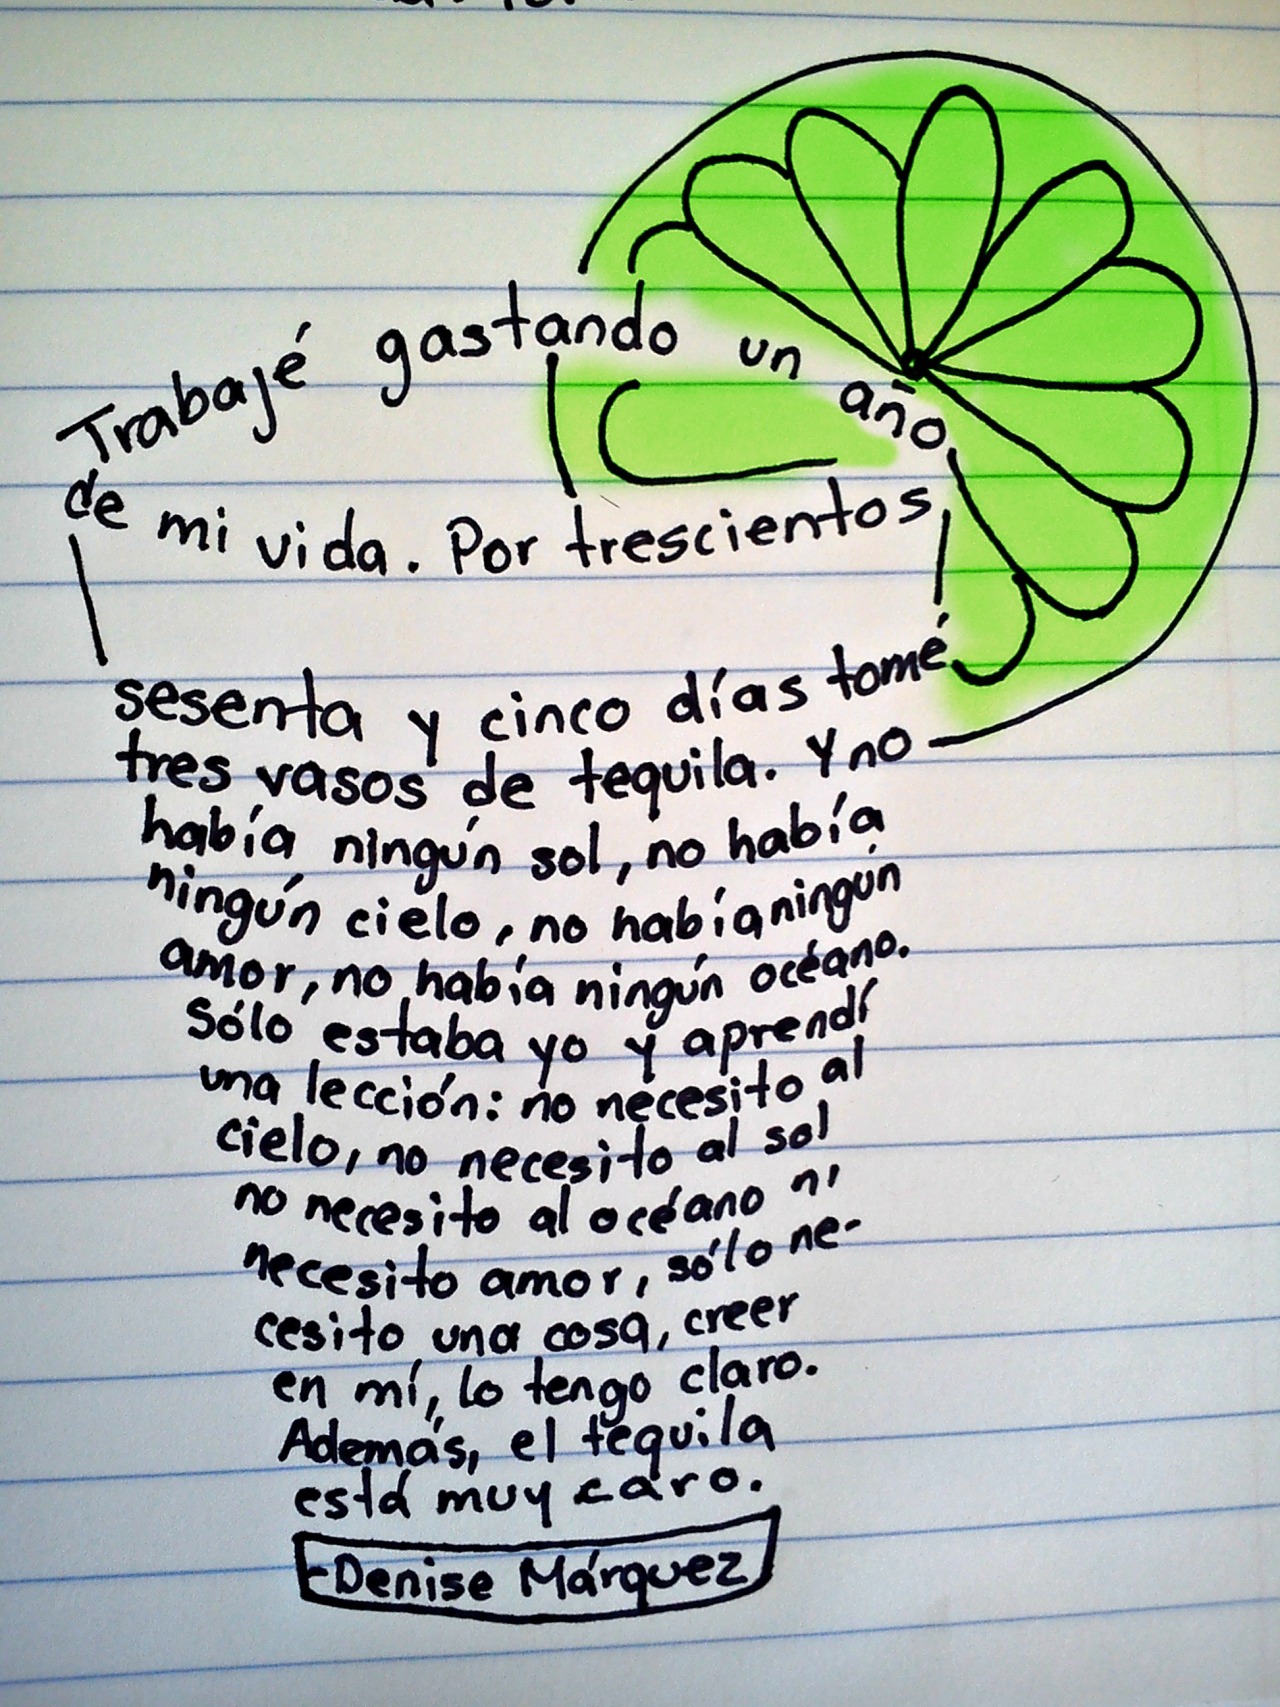 Trabajé gastando un año
de mi vida. Por trescientos
sesenta y cinco días tomé
tres vasos de tequila. Y no
había ningún sol, no había
ningún cielo, no había ningún
amor, no había ningún océano.
Sólo estaba yo y aprendí
una lección: no necesito al
cielo, no necesito al sol
no necesito al océano ni
necesito amor, sólo ne-
cesito una cosa, creer
en mí, lo tengo claro.
Además, el tequila
está muy caro.
-Denise Márquez